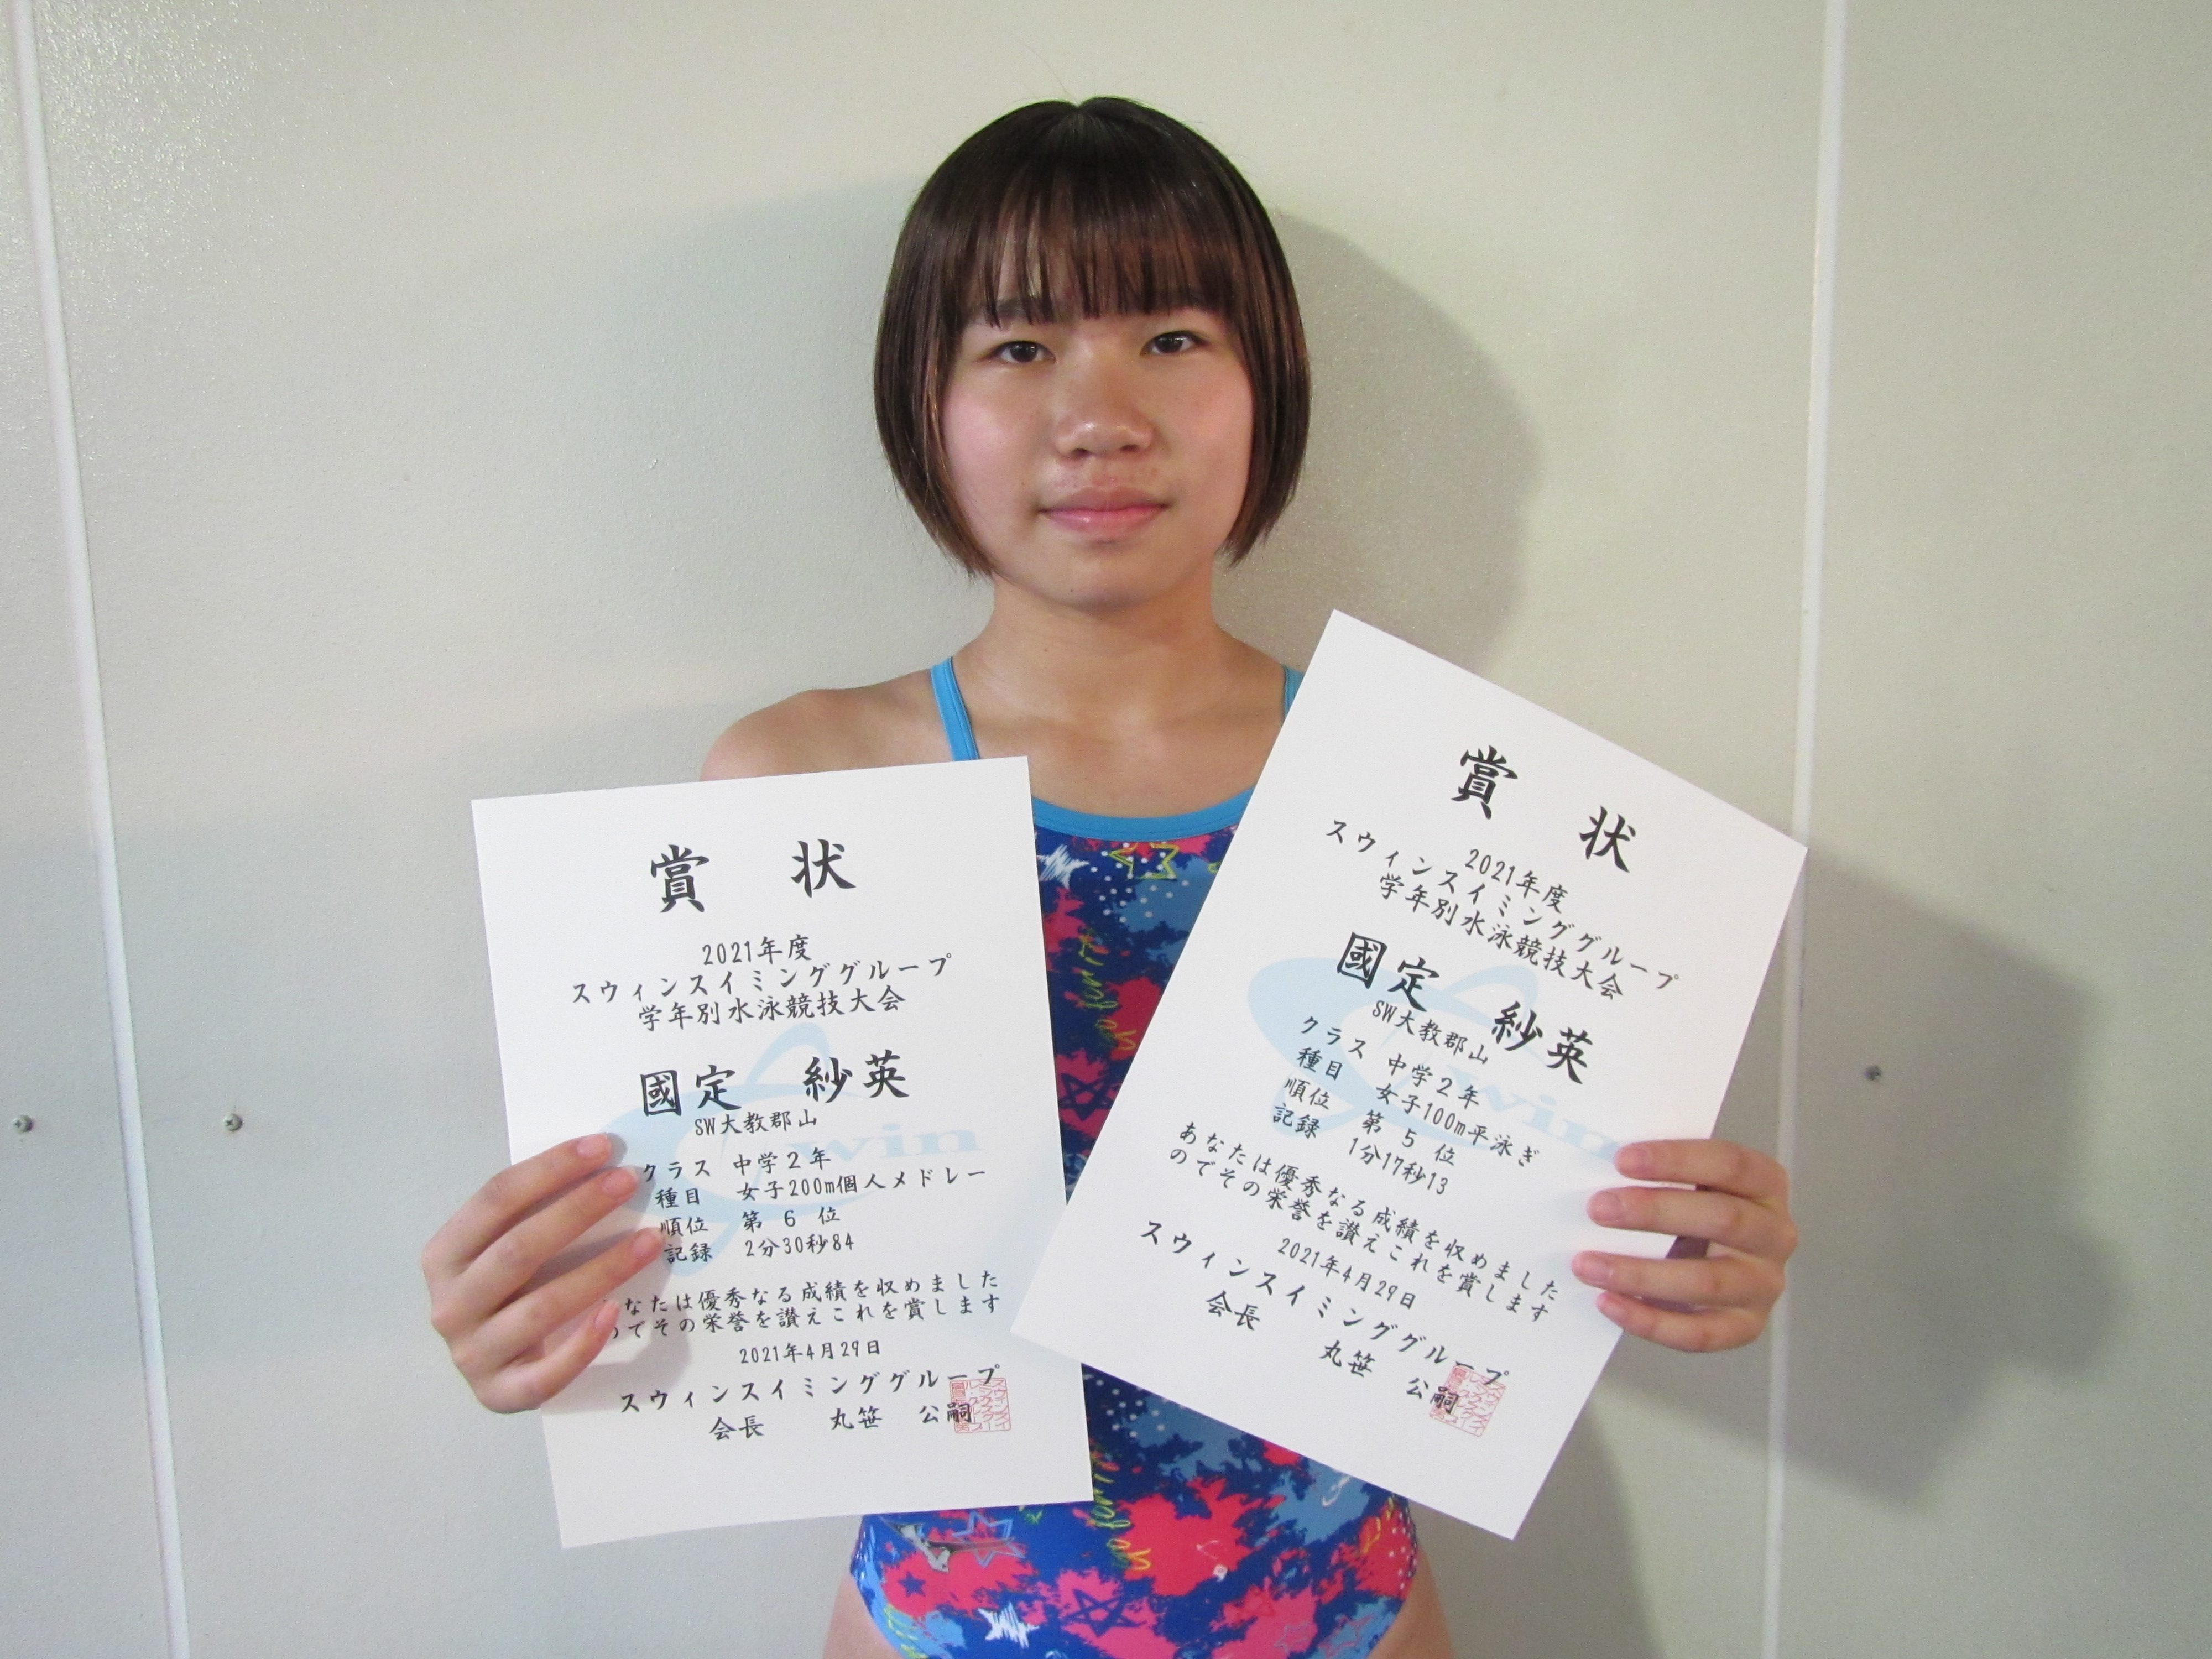 賞 状
2021年度
スウィンスイミンググループ
学年別水泳競技大会
國定 紗英
SW大教郡山
クラス 中学2年
種目 女子200m個人メドレー
順位 第 6 位
記録 2分30秒84
なたは優秀なる成績を収めました
のでその栄誉を讃えこれを賞します
2021年4月29日
スウィンスイミンググループ
会長 丸笹 公嗣
Swin
賞 状
2021年度
スウィンスイミンググループ
学年別水泳競技大会
國定 紗英
SW大教郡山
クラス 中学2年
種目 女子100m平泳ぎ
順位 第 5 位
記録 1分17秒13
あなたは優秀なる成績を収めました
のでその栄誉を讃えこれを賞します
2021年4月29日
スウィンスイミンググループ
会長 丸笹 公嗣
Swin